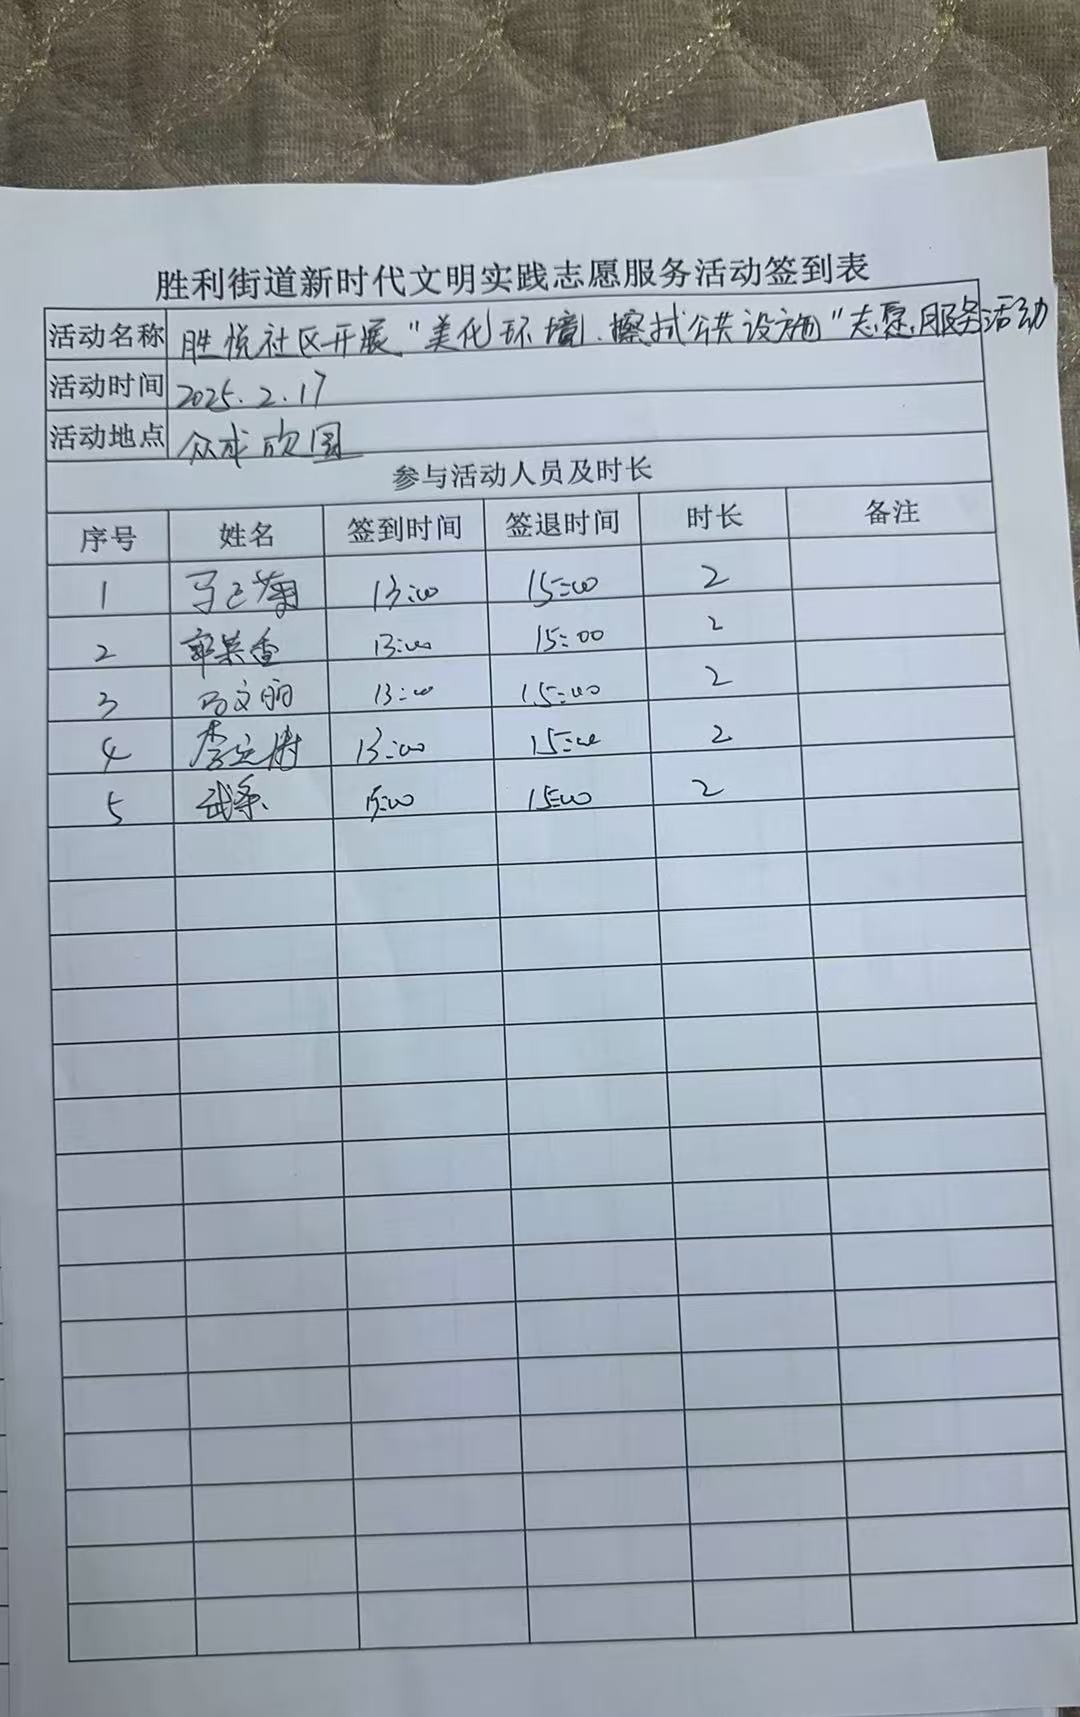 胜利街道新时代文明实践志愿服务活动签到表
活动名称 胜悦社区开展"美化环境、擦拭公共设施"志愿服务活动
活动时间 2025.2.17
活动地点 众成欣园
参与活动人员及时长
序号 姓名 签到时间 签退时间 时长 备注
1 13:00 15:00 2
2 13:00 15:00 2
3 马文丽 13:00 15:00 2
4 13:00 15:00 2
5 15:00 2